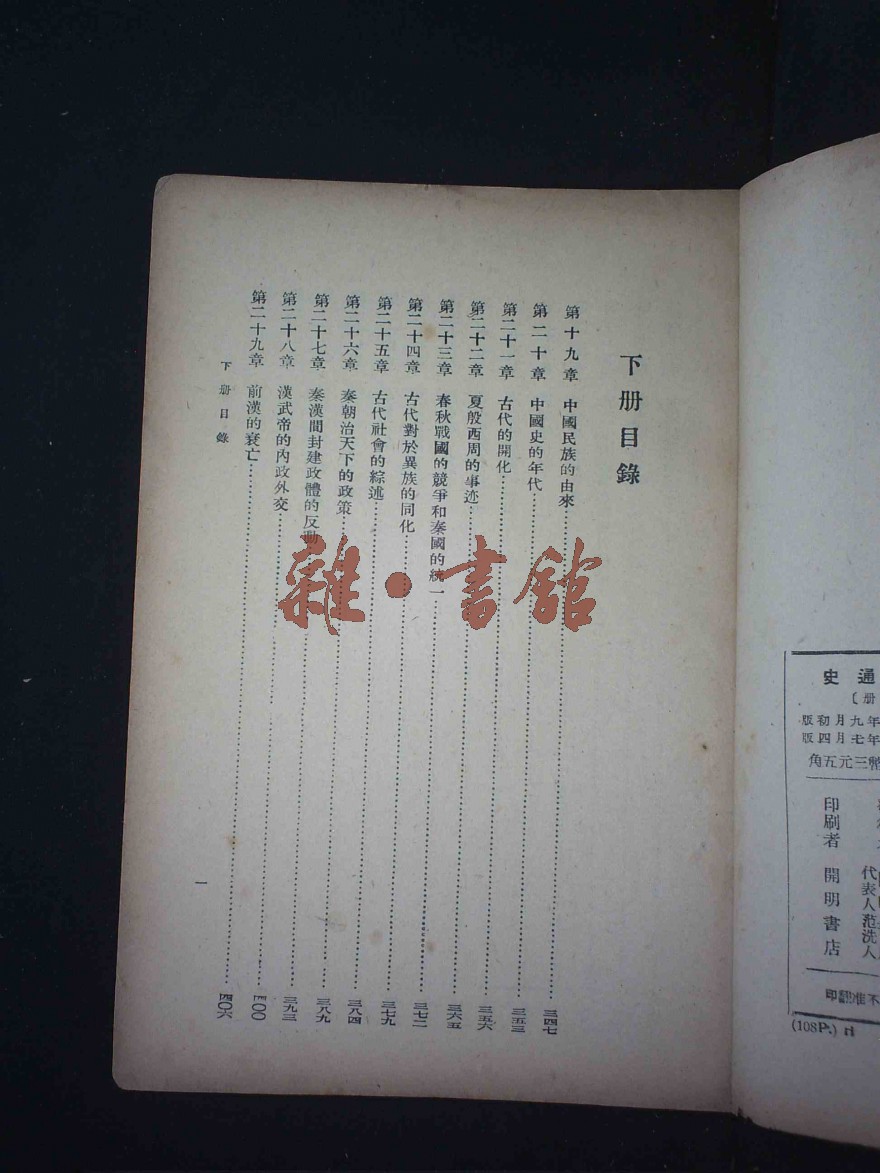 通史
册〕
年九月初版
年七月四版
幣三元五角
代表人范洗人
印刷者 開明書店
不准翻印
(108P.) H
下册目錄
第十九章 中國民族的由來……三四七
第二十章 中國史的年代……三五三
第二十一章 古代的開化……三五六
第二十二章 夏殷西周的事迹……三六五
第二十三章 春秋戰國的競爭和秦國的統一……三七二
第二十四章 古代對於異族的同化……三七九
第二十五章 古代社會的綜述……三八四
第二十六章 秦朝治天下的政策……三八九
第二十七章 秦漢間封建政體的反動……三九三
第二十八章 漢武帝的內政外交……四〇〇
第二十九章 前漢的衰亡……四〇六
下册目錄
一
雜·書館